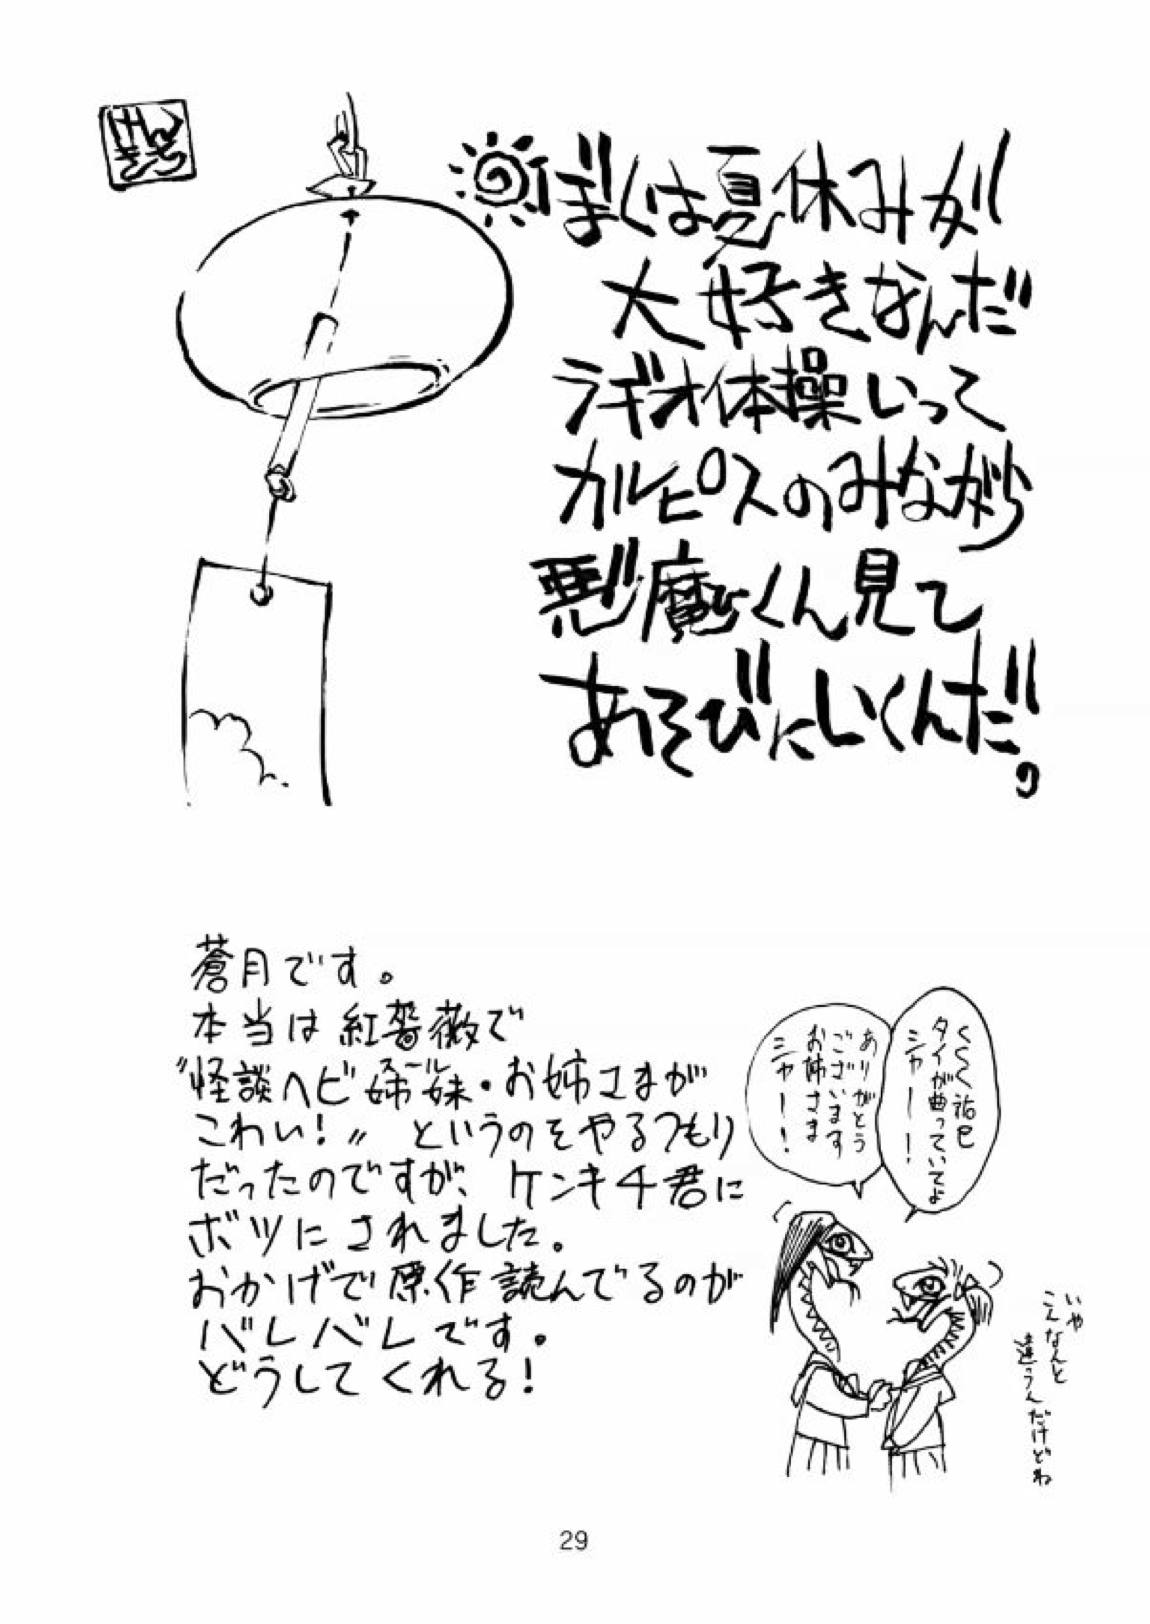 けんきち
ぼくは夏休みが
大好きなんだ
ラヂオ体操いって
カルピスのみながら
悪魔くん見て
あそびにいくんだ。
蒼月です。
本当は紅薔薇で
〝怪談ヘビ姉妹・お姉さまが
スール
こわい!〟というのをやるつもり
だったのですが、ケンキチ君に
ボツにされました。
おかげで原作読んでるのが
バレバレです。
どうしてくれる!
くくく祐巳
タイが曲っていてよ
シャーー!
ありがとう
ございます
お姉さま
シャー!
いや
こんなんと
違うんだけどね
29